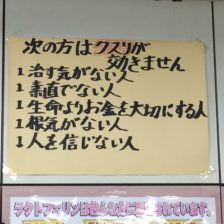 次の方はクスリが
効きません
1 治す気がない人
1 素直でない人
1 生命よりお金を大切にする人
1 根気がない人
1 人を信じない人
ラクトフェリンは
されています。